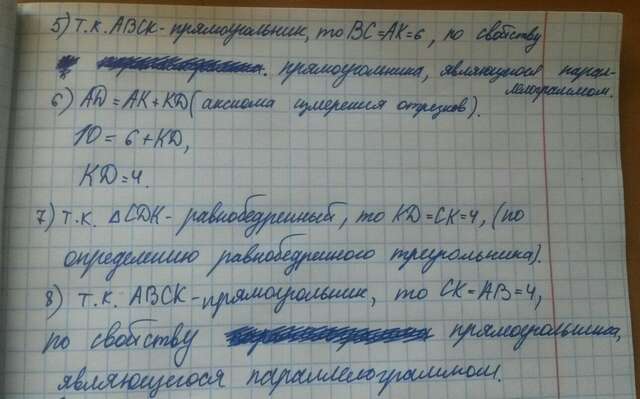 5) т.к. АВСК - прямоугольник, то ВС=АК=6, по свойству
прямоугольника, являющегося парал-
лелограммом.
6) AD = AK + KD (аксиома измерения отрезков).
10 = 6 + KD,
KD = 4.
7) т.к. △CDK - равнобедренный, то KD = CK = 4, (по
определению равнобедренного треугольника).
8) т.к. АВСК - прямоугольник, то СК = АВ = 4,
по свойству прямоугольника,
являющегося параллелограммом.